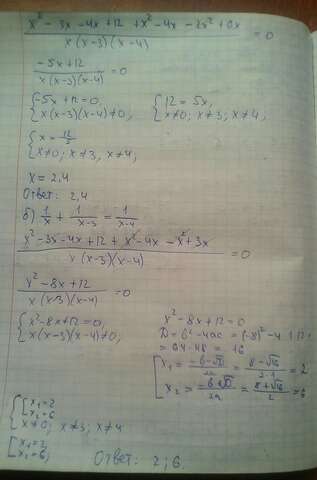 x² - 3x - 4x + 12 + x² - 4x - 2x² + 6x / x(x-3)(x-4) = 0
-5x + 12 / x(x-3)(x-4) = 0
{ -5x + 12 = 0, x(x-3)(x-4) ≠ 0; { 12 = 5x, x ≠ 0; x ≠ 3; x ≠ 4;
{ x = 12/5 x ≠ 0; x ≠ 3, x ≠ 4;
x = 2,4
Ответ: 2,4
б) 1/x + 1/x-3 = 1/x-4
x² - 3x - 4x + 12 + x² - 4x - x² + 3x / x(x-3)(x-4) = 0
x² - 8x + 12 / x(x-3)(x-4) = 0
{ x² - 8x + 12 = 0, x(x-3)(x-4) ≠ 0;
x² - 8x + 12 = 0
D = b² - 4ac = (-8)² - 4·1·12 =
= 64 - 48 = 16
[ x₁ = -b-√D / 2a = 8-√16 / 2·1 = 2
x₂ = -b+√D / 2a = 8+√16 / 2 = 6
{ [ x₁ = 2 x₂ = 6 x ≠ 0; x ≠ 3; x ≠ 4
[ x₁ = 2 x₂ = 6;
Ответ: 2; 6.